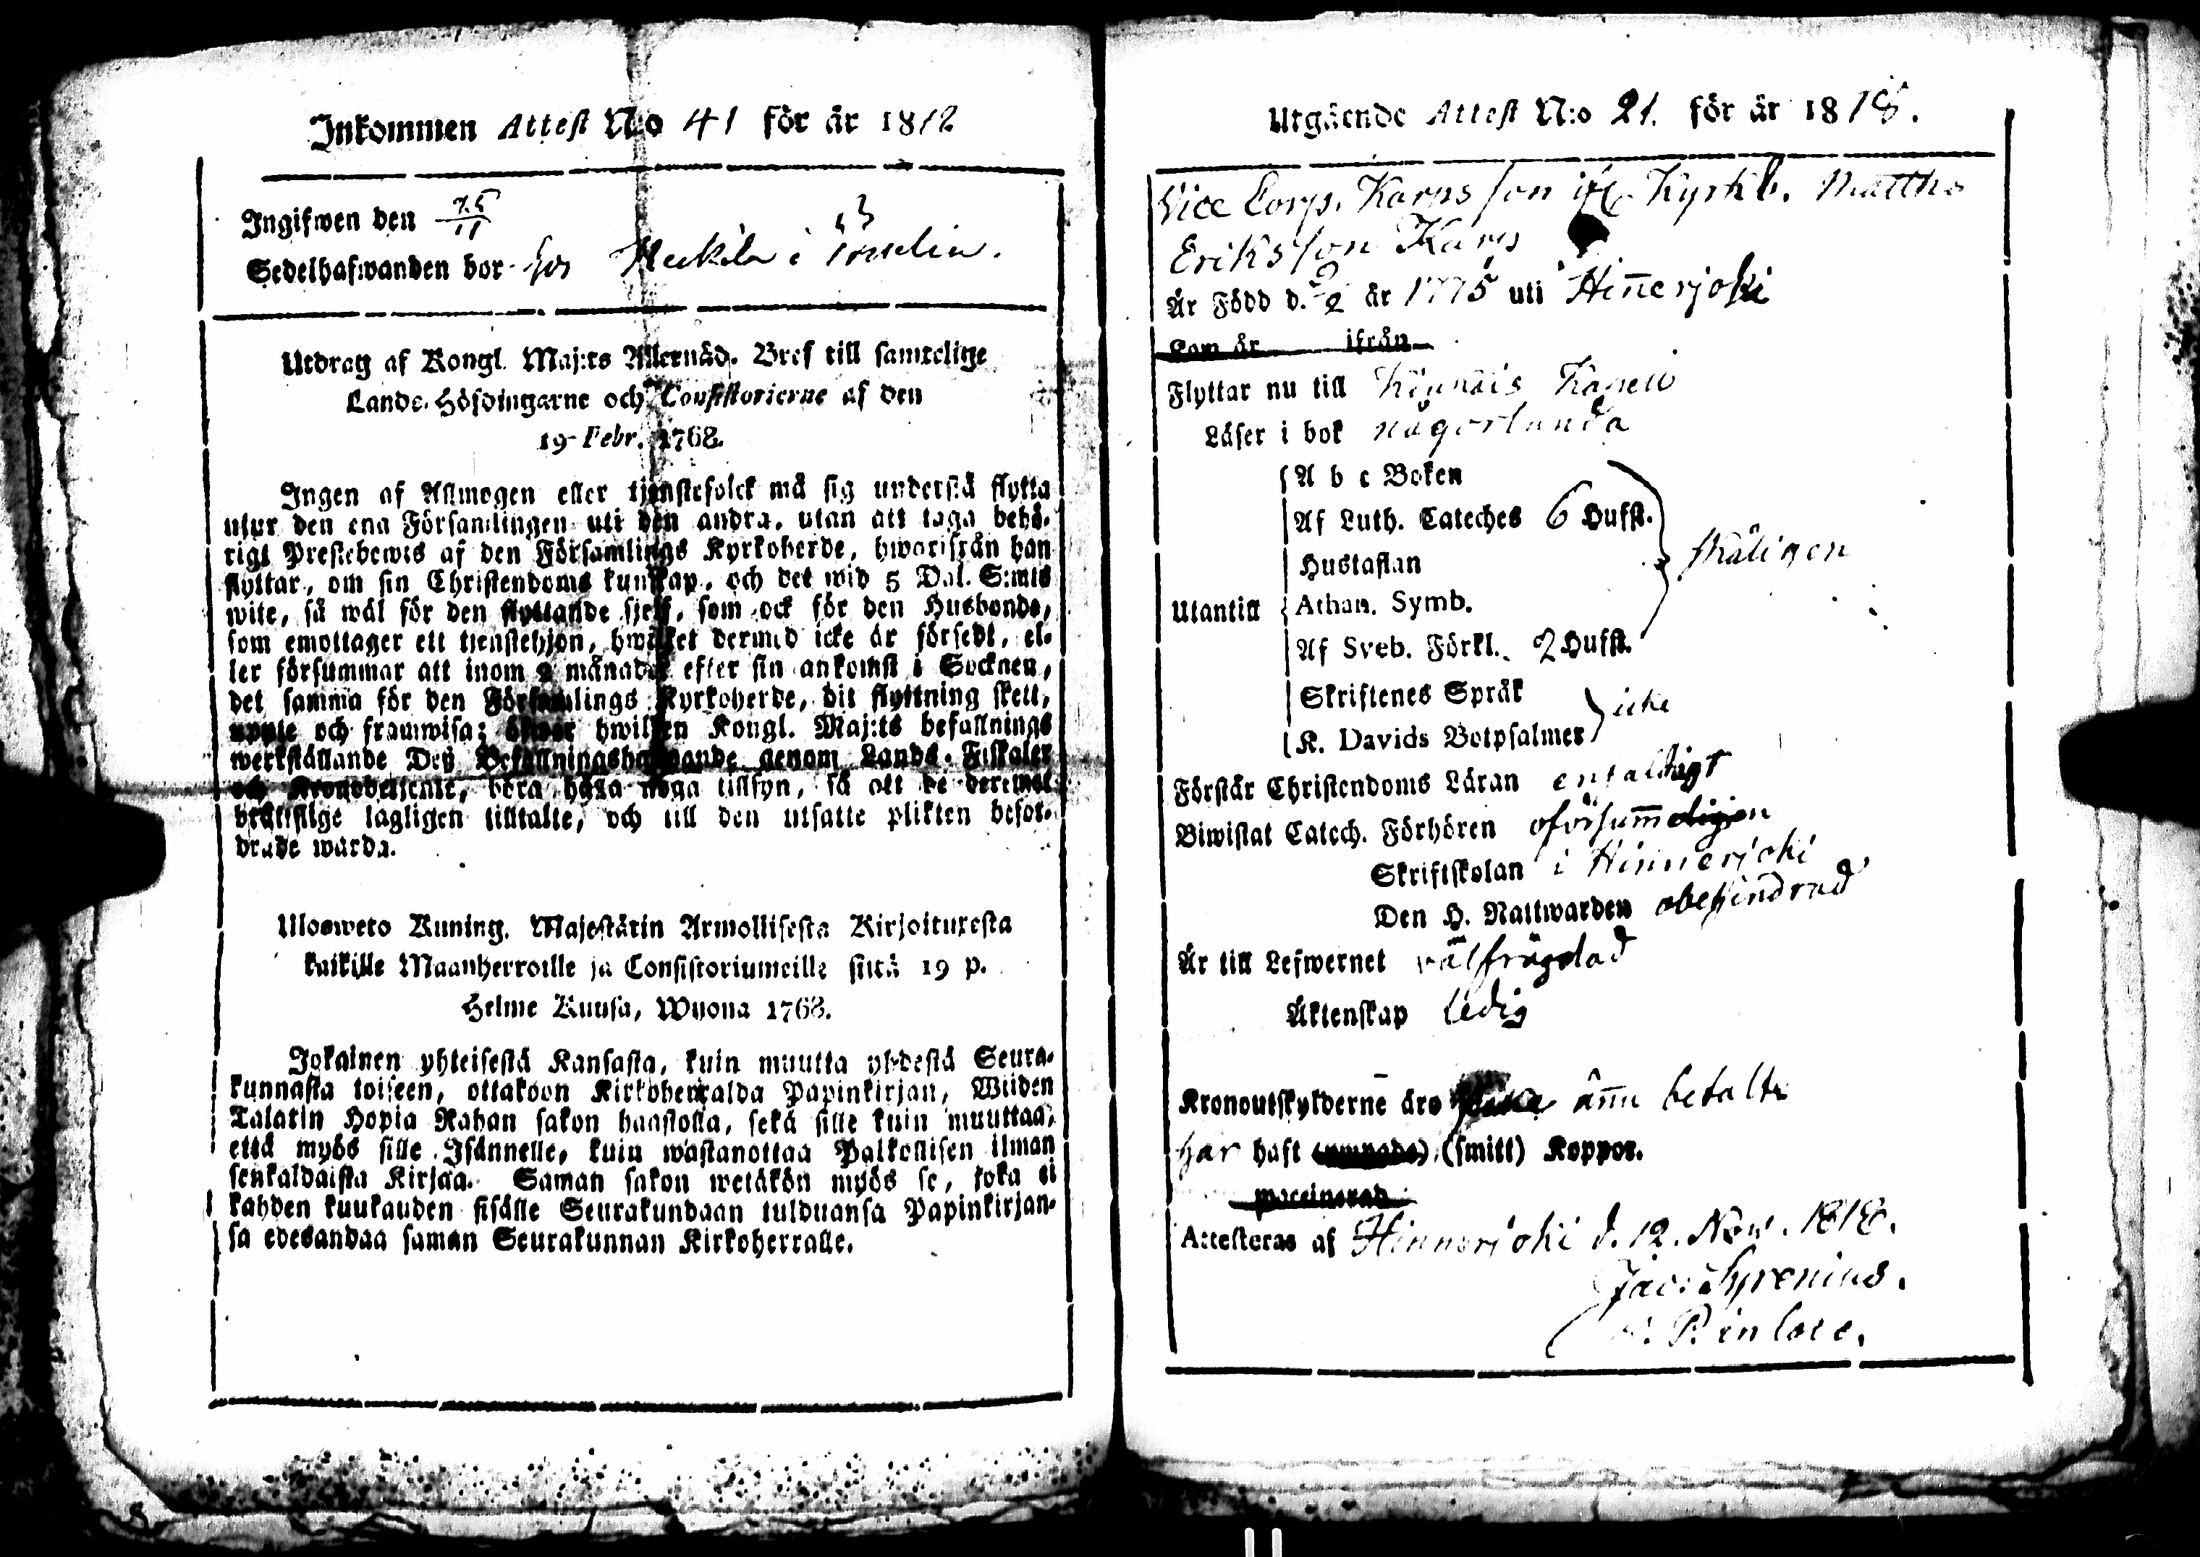 Inkommen Attest N:o 41 för år 1818
Ingifwen den 25/11
Sedelhafwanden bor hos Heikilä i
Utdrag af Kongl. Maj:ts Allernåd. Bref till samtelige
Lands-Höfdingarne och Consistorierne af den
19 Febr. 1768.
Ingen af Allmogen eller tjenstefolck må sig understå flytta
utur den ena Församlingen uti den andra, utan att taga behö-
rigt Prestebewis af den Församlings Kyrkoherde, hwarifrån han
flyttar, om sin Christendoms kunskap, och det wid 5 Dal. S:mts
wite, så wäl för den flyttande sjelf, som ock för den Husbonde,
som emottager ett tjenstehjon, hwilket dermed icke är försedt, el-
ler försummar att inom 2 månader efter sin ankomst i Socknen,
det samma för den Församlings Kyrkoherde, dit flyttning skett,
upte och framwisa; öfwer hwilken Kongl. Maj:ts befallnings
werkställande Deß Befallningshafwande genom Lands-Fiskaler
och Kronobetjente, böra hafwa noga tillsyn, så att de deremot
bråttslige lagligen tilltalte, och till den utsatte plikten befor-
drade warda.
Ulosweto Kuning. Majestätin Armollisesta Kirjoituxesta
kaikille Maanherroille ja Consistoriumeille siitä 19 p.
Helme Kuusa, Wuona 1768.
Jokainen yhteisestä Kansasta, kuin muutta yhdestä Seura-
kunnasta toiseen, ottakoon Kirkoherralda Papinkirjan, Wiiden
Talarin Hopia Rahan sakon haastolla, sekä sille kuin muuttaa,
että myös sille Isännelle, kuin wastanottaa Palkollisen ilman
senkaldaista Kirjaa. Saman sakon wetäkön myös se, joka ei
kahden kuukauden sisälle Seurakundaan tulduansa Papinkirjan-
sa edesandaa saman Seurakunnan Kirkoherralle.
Utgående Attest N:o 21. för år 1818.
Vice Corp. Karps son Kyrkb. Matths
Eriksson Karps
Är Född d. 2/2 år 1775 uti Hinnerjoki
Kom år ifrån
Flyttar nu till Kinnais Kapell
Läser i bok någorlunda
A b c Boken
Af Luth. Cateches 6 Hufst.
Hustaflan
skäligen
Utantill Athan. Symb.
Af Sveb. Förkl. 2 Hufst.
Skriftenes Språk
icke
K. Davids Botpsalmer
Förstår Christendoms Läran enfaldigt
Biwistat Catech. Förhören oförsummeligen
Skriftskolan i Hinnerjoki
Den H. Nattwarden obehindrad
Är till Lefwernet välfrägdad
Äktenskap ledig
Kronoutskylderne äro ännu betalte
har haft (smitt) Koppor.
vaccinerad
Attesteras af Hinnerjoki d. 12. Nov. 1818.
Jac: Syrenius.